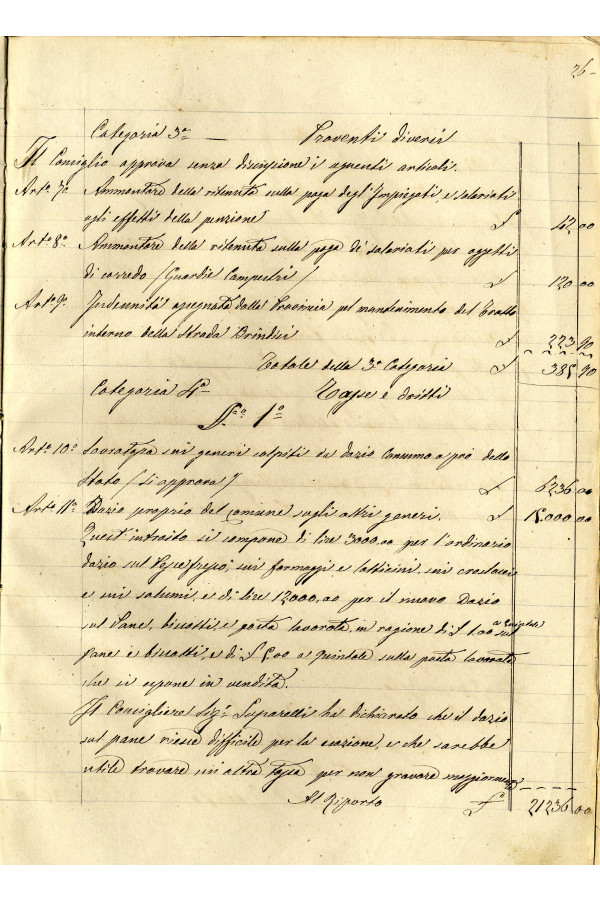 26-
Categoria 3ª — Proventi diversi
Il Consiglio approva senza discussione i seguenti articoli.
Artº 7º Ammontare della ritenuta sulla paga degl'Impiegati e salariati
agli effetti della pensione £ 42,00
Artº 8º Ammontare della ritenuta sulla paga de' salariati per oggetti
di corredo (Guardie Campestri) £ 120 00
Artº 9º Indennità assegnata dalla Provincia pel mantenimento del tratto
interno della Strada Brindisi £ 223 90
Totale della 3ª Categoria £ 385 90
Categoria 4ª Tasse e dritti
§º 1º
Artº 10º Sovratassa sui generi colpiti da dazio Consumo a pro dello
Stato (Si approva) £ 6236 00
Artº 11º Dazio proprio del comune sugli altri generi. £ 15.000 00
Quest'introito si compone di lire 3000,00 per l'ordinario
dazio sul Pesce fresco, sui formaggi e latticini, sui crostacei
e sui salumi, e di lire 12000,00 per il nuovo Dazio
sul Pane, biscotti, e pasta lavorata, in ragione di £ 1,00 a quintale sul
pane e biscotti, e di £ 5,00 a quintale sulla pasta lavorata
che si espone in vendita.
Il Consigliere Sigʳ Scoparelli ha dichiarato che il dazio
sul pane riesce difficile per la esazione, e che sarebbe
utile trovare un'altra tassa per non gravare maggiormente
Al Riporto £ 21236 00